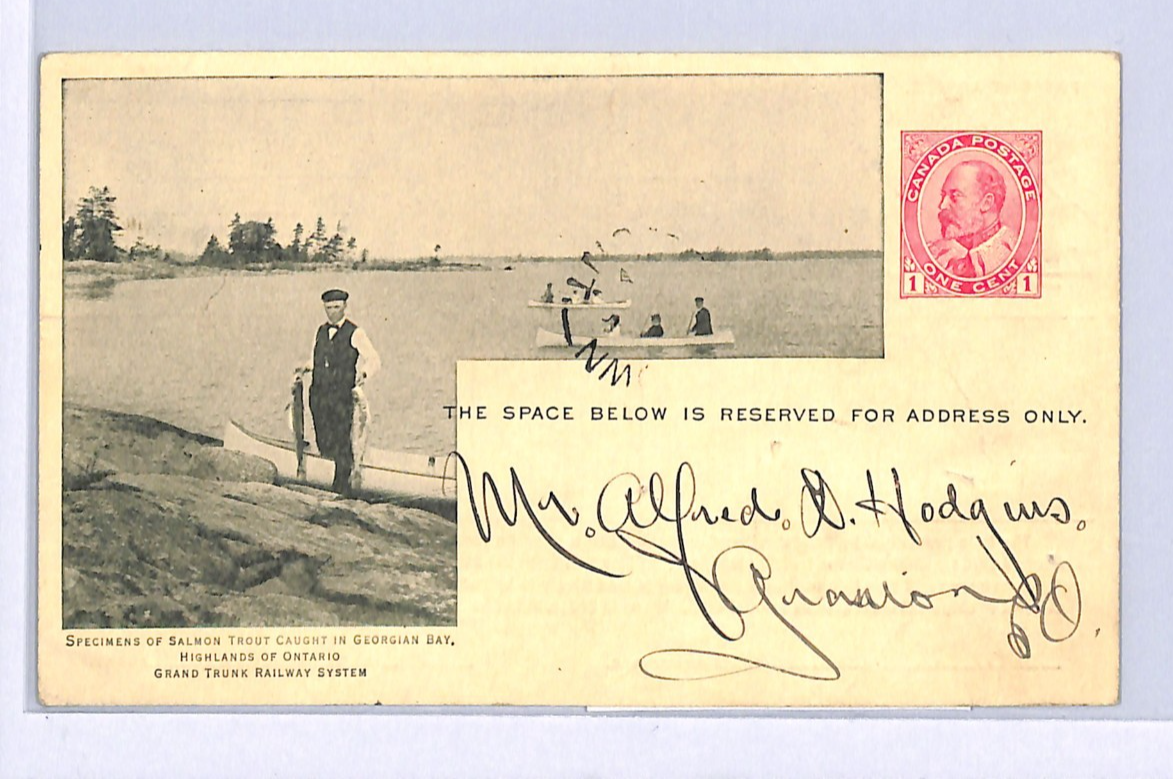 CANADA POSTAGE
ONE CENT
1 1
NM
THE SPACE BELOW IS RESERVED FOR ADDRESS ONLY.
Mr. Alfred. D. Hodgins.
SPECIMENS OF SALMON TROUT CAUGHT IN GEORGIAN BAY,
HIGHLANDS OF ONTARIO
GRAND TRUNK RAILWAY SYSTEM